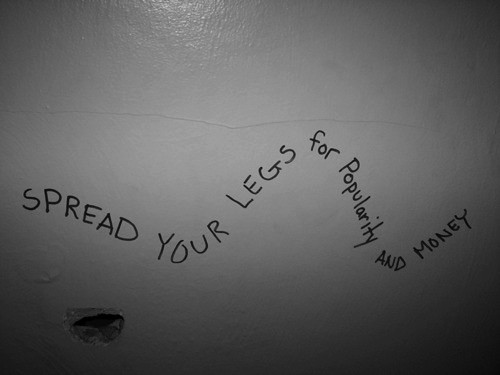 SPREAD YOUR LEGS for Popularity AND MONEY